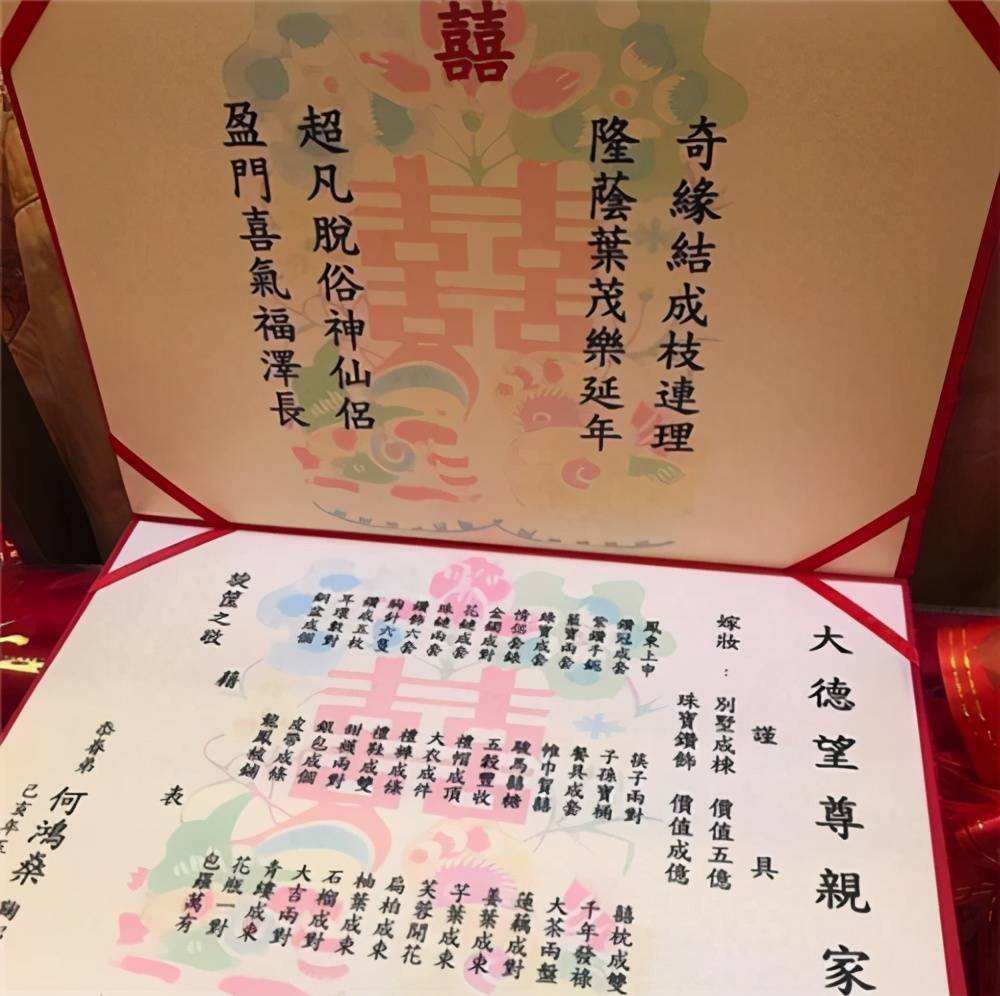 囍
奇緣結成枝連理
隆蔭葉茂樂延年
超凡脫俗神仙侶
盈門喜氣福澤長
大德望尊親家
謹具
嫁妝：別墅成棟 價值五億
珠寶鑽飾 價值成億
鳳東上申
鑽冠成套
紫鑽千鈪
藍寶兩套
綠寶成套
情侶套錶
金鐲成對
花鏈成套
珠鏈兩套
鑽飾六套
胸針六隻
鑽戒五枚
耳環數對
銅盆成個
筷子兩對
子孫寶桶
餐具成套
帷巾賀囍
駿馬囍糖
五穀豐收
禮帽成頂
大衣成件
禮褲成條
禮鞋成雙
甜襪兩對
銀包成個
皮帶成條
龍鳳被鋪
囍枕成雙
千年發祿
大茶兩盤
蓮藕成對
姜葉成束
芋葉成束
芙蓉開花
扁柏成束
柚葉成束
石榴成對
大吉兩對
青縷成束
花瓶一對
包羅萬有
奩篋之敬 藉表
忝眷弟 何鴻燊 鞠躬
己亥年